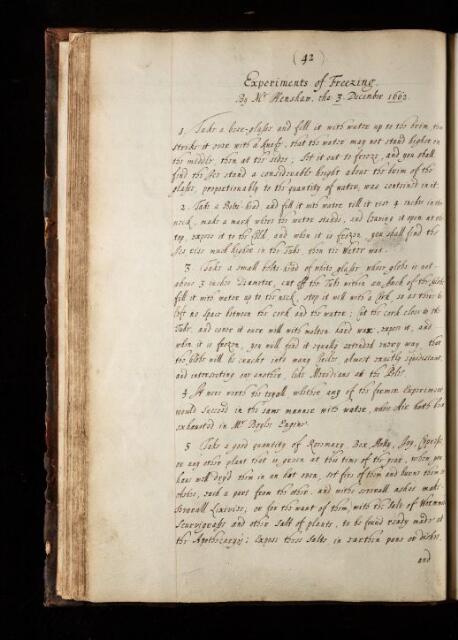 (42)
Experiments of Freezing.
By Mr Henshaw, the 3 December 1662
1. Take a beer-glasse and fill it with water up to the brim, then
strike it over with a knife, that the water may not stand higher in
the middle, then at the sides; Set it out to freeze, and you shall
find the Ice stand a considerable height above the brim of the
glasse, proportionably to the quantity of water, was contained in it.
2. Take a Bolt-head, and fill it with water till it rise 4 inches in the
neck, make a mark where the water stands, and leaving it open at the
top, expose it to the Cold, and when it is frozen, you shall find the
Ice rise much higher in the Tube, then the Water was.
3 Take a small bolt-head of white glasse whose globe is not
above 3 inches Diameter, cut off the Tube within an Inch of the
fill it with water up to the neck, stop it well with a Cork, so as there be
left no space between the cork and the water; Cut the cork close to the
Tube, and cover it over well with molten hard wax, expose it, and
when it is frozen, you will find it equally extended every way, that
the globe will be crackt into many peeces almost exactly equidistant,
and intersecting one another, like Meridians at the Poles.
4 It were worth the tryall, whether any of the former Experiments
would succeed in the same manner with water, where Air hath been
exhausted in Mr Boyles Engine.
5 Take a good quantity of Rosemary Box, Holly, Ivy, Cypresse
or any other plant that is green at this time of the year, when you
have well dry'd them in an hot oven, set fire of them and burne them to
ashes, each a part from the other. and with severall ashes make
severall Lixivia's, or for the want of them, with the Salt of
Scurvigrasse and other Salt of plants, to be found ready made at
the Apothecarys; Expose these Salts, in earthen pans or dishes,
and